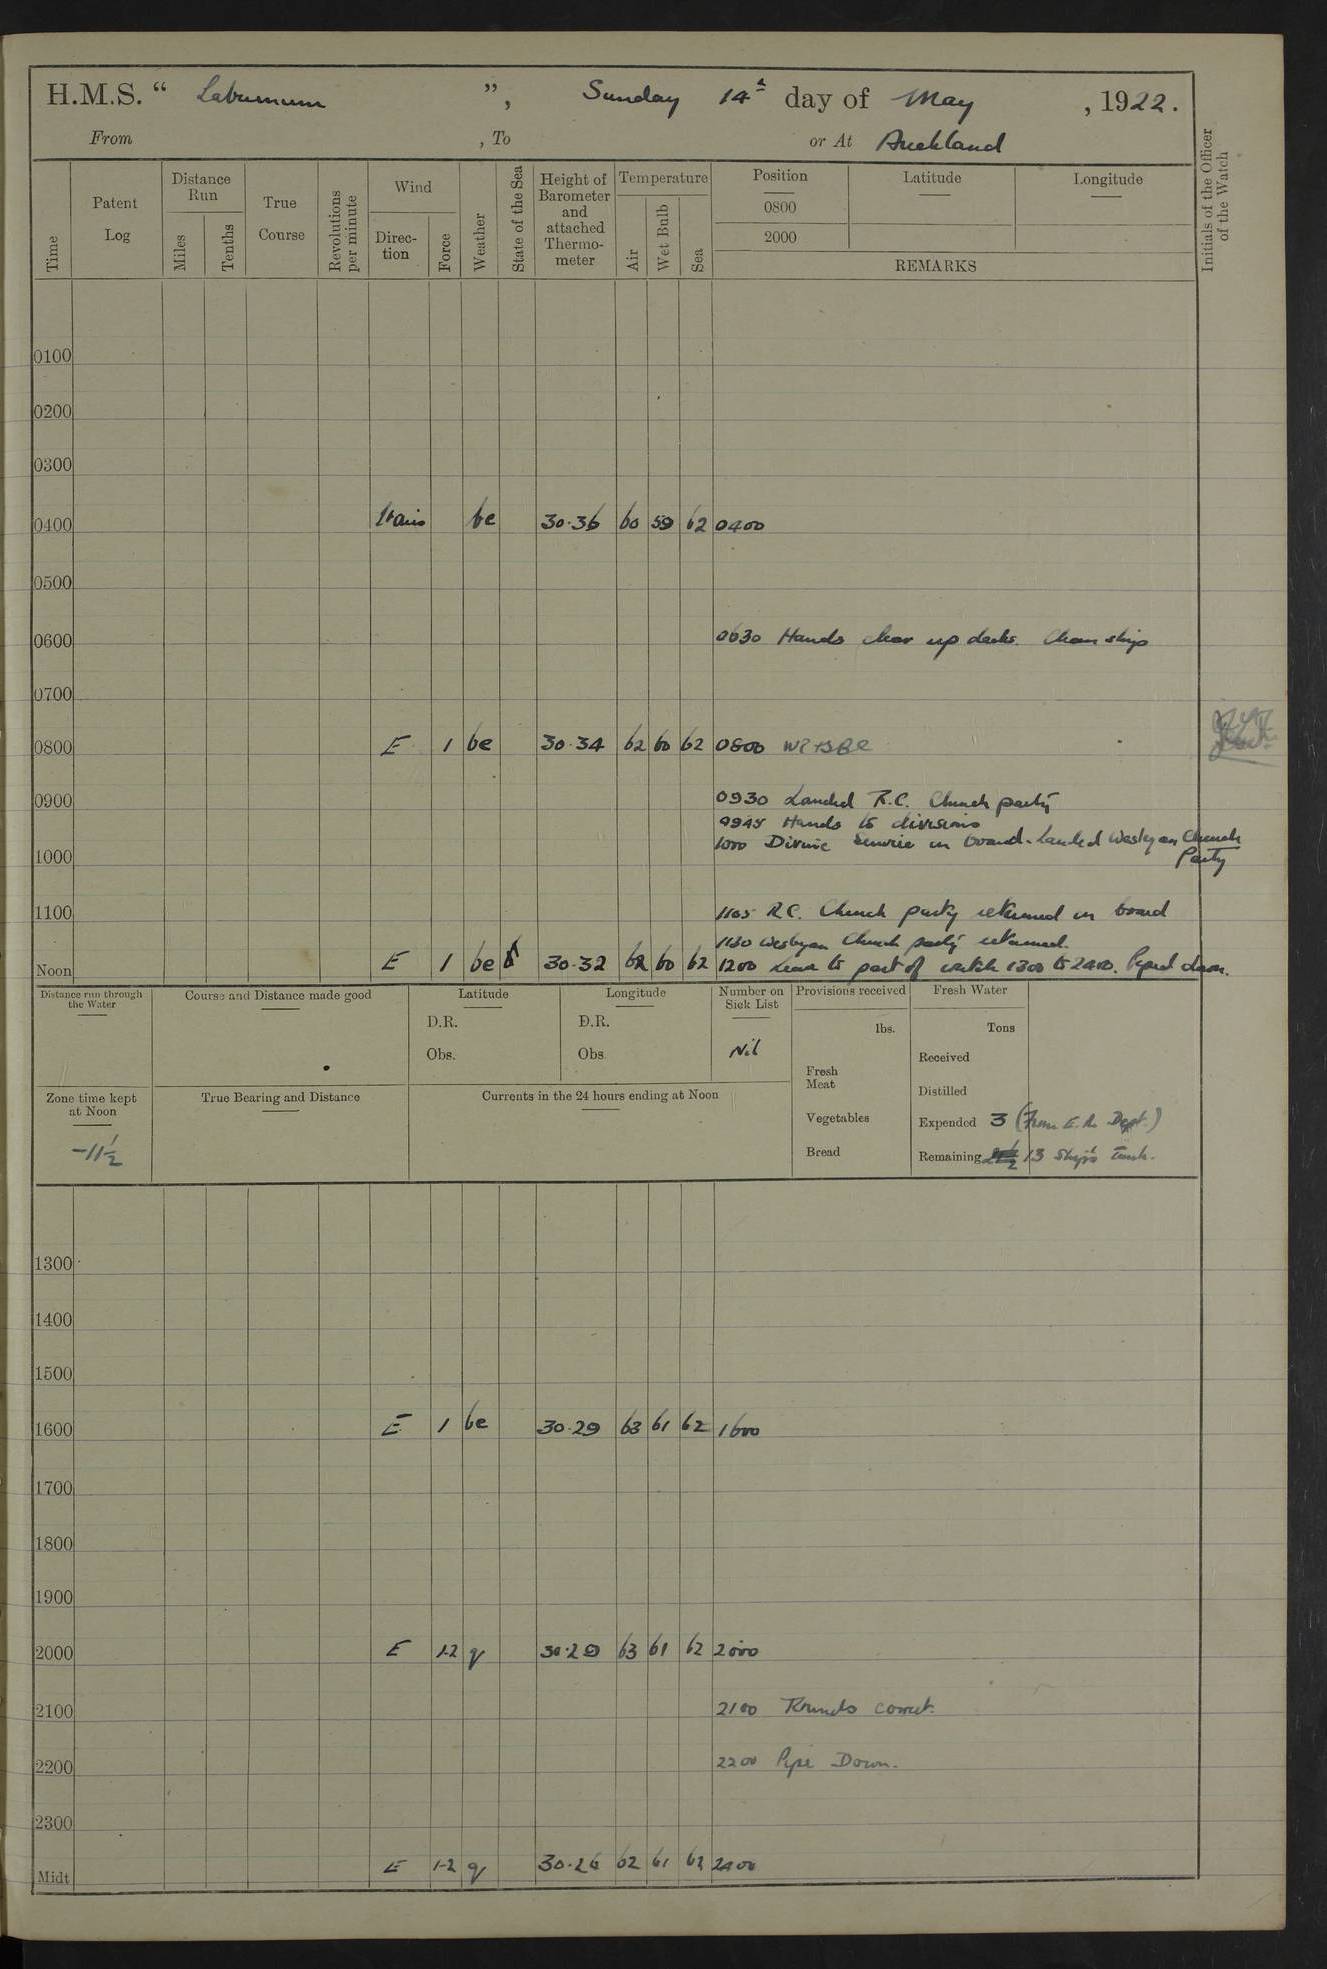 H.M.S. “ Laburnum ”, Sunday 14th day of May , 1922.
From , To or At Auckland
Time
Patent Log
Distance Run
Miles
Tenths
True Course
Revolutions per minute
Wind
Direc-tion
Force
Weather
State of the Sea
Height of Barometer and attached Thermo-meter
Temperature
Air
Wet Bulb
Sea
Position
0800
2000
Latitude
Longitude
REMARKS
Initials of the Officer of the Watch
0100
0200
0300
0400 bc 30.36 60 59 62 0400
0500
0600 0630 Hands clear up decks. Clean ship
0700
0800 E 1 bc 30.34 62 60 62 0800
0900 0930 Landed R.C. Church party
0945 Hands to divisions
1000 1000 Divine Service on board. Landed Wesleyan Church Party
1100 1105 R.C. Church party returned on board
1130 Wesleyan Church party returned.
Noon E 1 bc 30.32 62 60 62 1200 Leave to part of watch 1300 to 2400. Piped down.
Distance run through the Water
Course and Distance made good
Latitude
D.R.
Obs.
Longitude
D.R.
Obs
Number on Sick List
Nil
Provisions received
lbs.
Fresh Meat
Vegetables
Bread
Fresh Water
Tons
Received
Distilled
Expended 3 (From E.R. Dept.)
Remaining 13 Ship's tank.
Zone time kept at Noon
-11½
True Bearing and Distance
Currents in the 24 hours ending at Noon
1300
1400
1500
1600 E 1 bc 30.29 63 61 62 1600
1700
1800
1900
2000 E 1-2 g 30.29 63 61 62 2000
2100 2100 Rounds correct.
2200 2200 Pipe Down.
2300
Midt E 1-2 g 30.26 62 61 62 2400